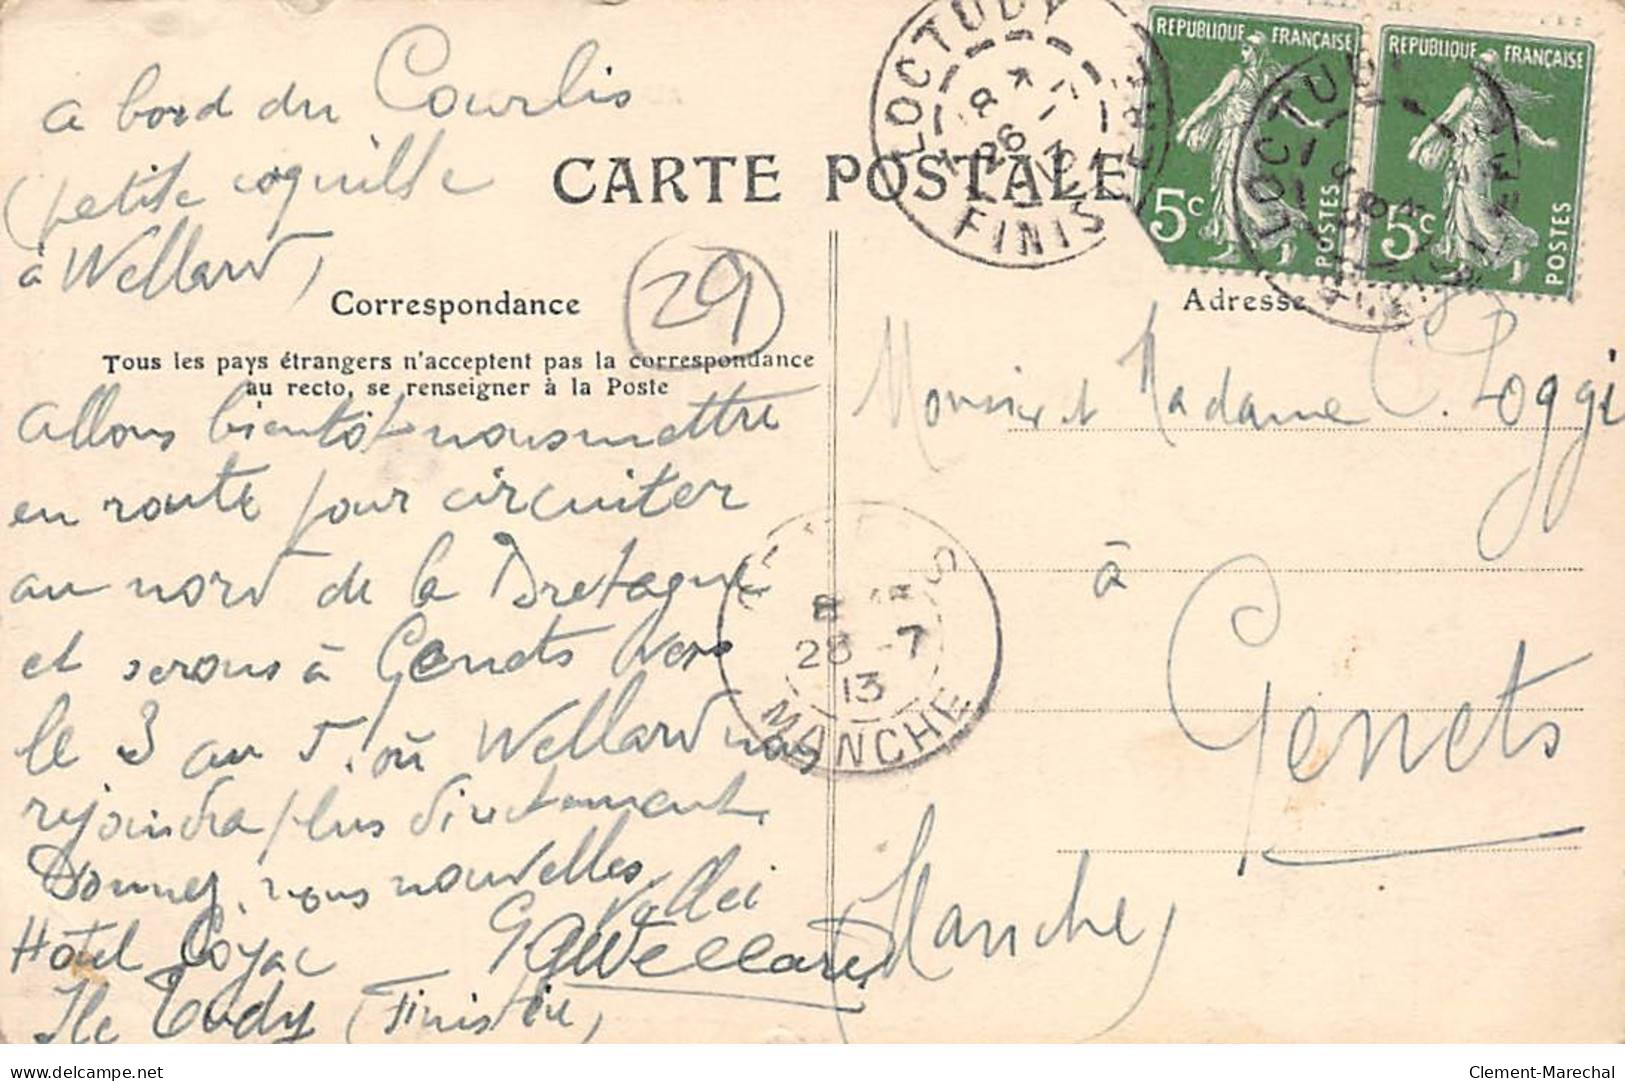 a bord du Courlis
(petite coquille
à Wellard)
CARTE POSTALE
LOCTUDY
FINISTERE
REPUBLIQUE FRANÇAISE
5c POSTES
REPUBLIQUE FRANÇAISE
5c POSTES
LOCTUDY
29
Correspondance
Adresse
Tous les pays étrangers n'acceptent pas la correspondance
au recto, se renseigner à la Poste
allons bientôt nous mettre
en route pour circuiter
au nord de la Bretagne
et serons à Genets vers
le 3 au 5, où Wellard nous
rejoindra plus directement.
Donnez nous nouvelles
Hôtel
Ile Tudy (Finistère)
Wellard
8
28 -7
13
MANCHE
Monsieur et Madame C. Poggi
à
Genets
Manche
Clement-Marechal